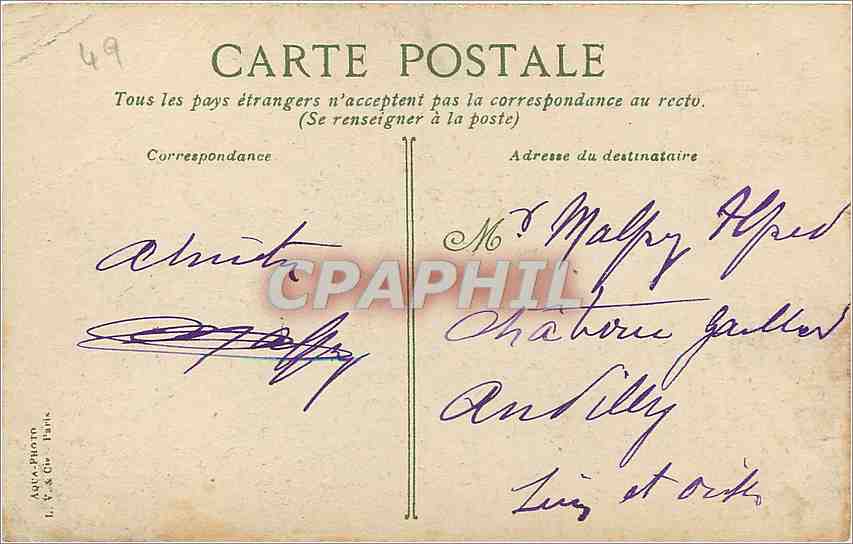 49
CARTE POSTALE
Tous les pays étrangers n'acceptent pas la correspondance au recto.
(Se renseigner à la poste)
Correspondance
Adresse du destinataire
Mr Malpry Alfred
Amitié
CPAPHIL
Malpry
Château Gaillard
Andilly
Seine et Oise
AQUA-PHOTO
L. V. & Cie Paris